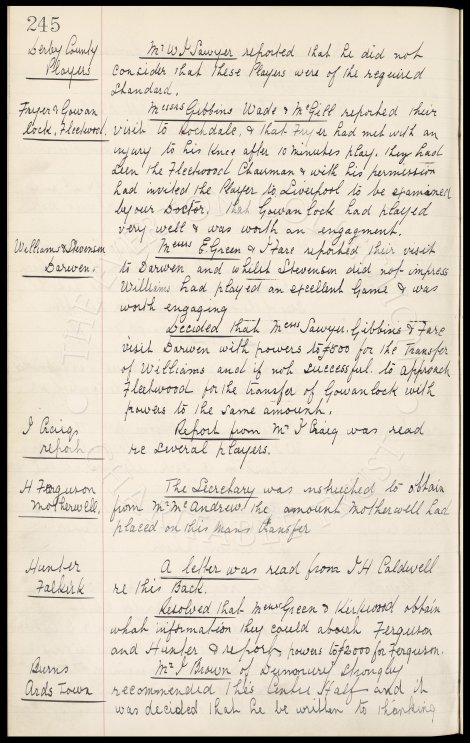 245
Derby County
Players
Mr W J Sawyer reported that he did not
consider that these Players were of the required
standard.
Fryer & Gowan
lock, Fleetwood.
Messrs Gibbins Wade & McGill reported their
visit to Rochdale, & that Fryer had met with an
injury to his Knee after 10 minutes play. They had
seen the Fleetwood Chairman & with his permission
had invited the Player to Liverpool to be examined
by our Doctor. That Gowanlock had played
very well & was worth an engagment.
Williams & Stevenson
Darwen.
Messrs E. Green & J Fare reported their visit
to Darwen and whilst Stevenson did not impress
Williams had played an excellent Game & was
worth engaging
Decided that Messrs Sawyer, Gibbins & Fare
visit Darwen with powers to £500 for the Transfer
of Williams and if not successful to approach
Fleetwood for the transfer of Gowanlock with
powers to the same amount.
J Craigs
report
Report from Mr J Craig was read
re several players.
H Ferguson
Motherwell.
The Secretary was instructed to obtain
from Mr McAndrew the amount Motherwell had
placed on this mans transfer
Hunter
Falkirk
A letter was read from J H Caldwell
re this Back.
Resolved that Messrs Green & Kirkwood obtain
what information they could about Ferguson
and Hunter & report, powers to £2000 for Ferguson.
Burns
Ards Town
Mr J Brown of Dunmurry strongly
recommended this Centre Half and it
was decided that he be written to thanking